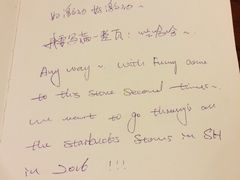 好激动 好激动~
我要写满一整页: 哈哈哈~
Any way ~ with Fung come
to this store second time~
we want to go through all
the starbucks stores in SH
in 2016 !!!